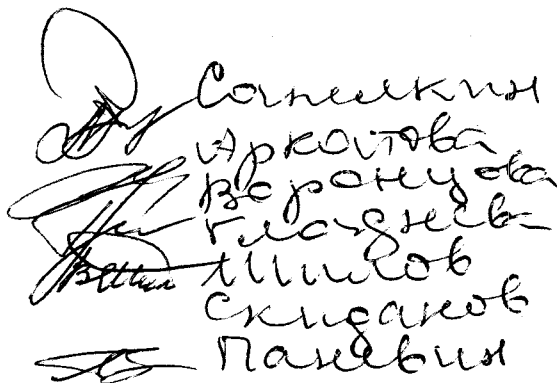 Санилкин
Аркатова
Воронцова
Гладнев
Шилов
Скиданов
Паневин